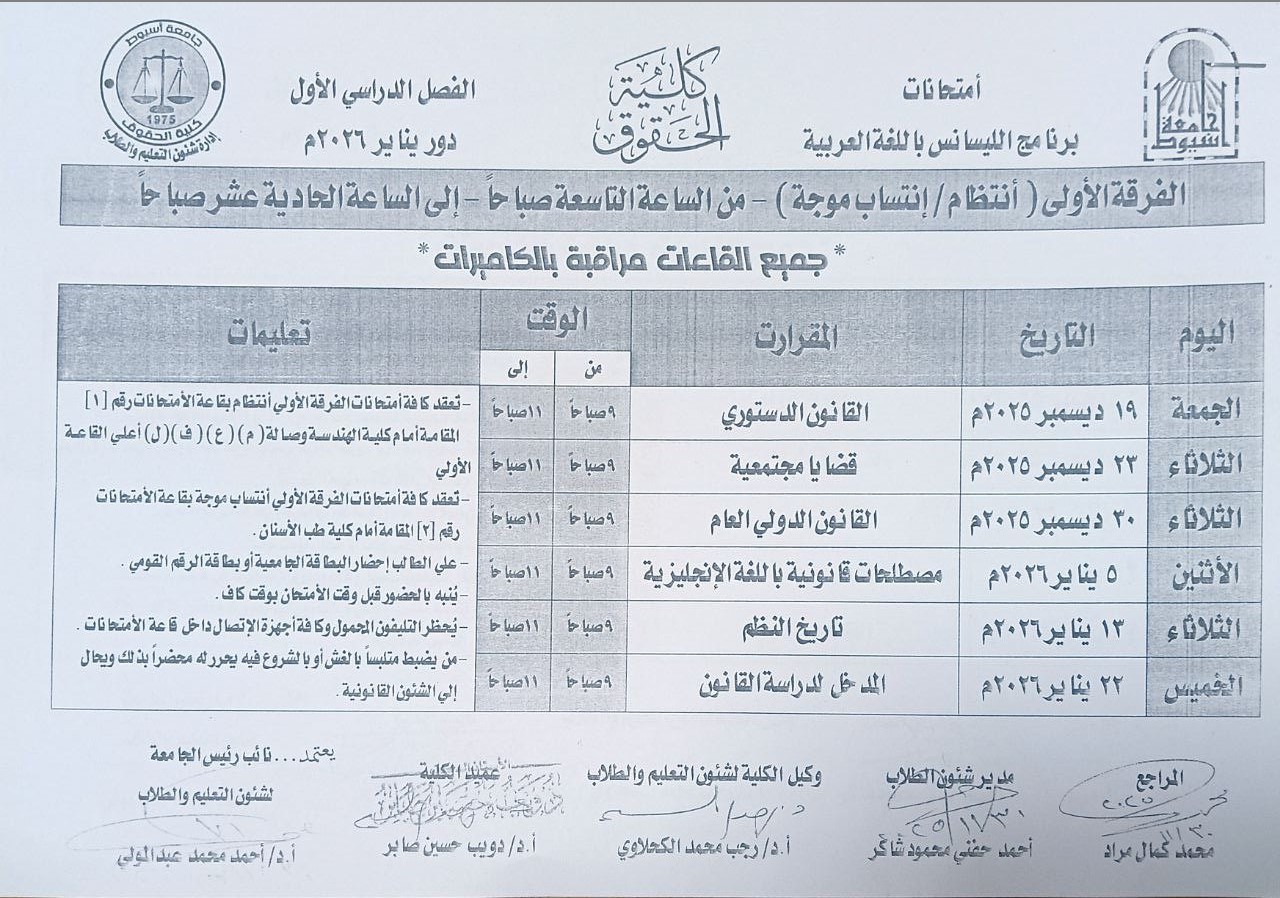 جامعة أسيوط
أمتحانات
برنامج الليسانس باللغة العربية
كلية الحقوق
الفصل الدراسي الأول
دور يناير ٢٠٢٦م
جامعة أسيوط
1975
كلية الحقوق
إدارة شئون التعليم والطلاب
الفرقة الأولى ( أنتظام / إنتساب موجة ) – من الساعة التاسعة صباحاً – إلى الساعة الحادية عشر صباحاً
* جميع القاعات مراقبة بالكاميرات *
اليوم التاريخ المقرارت الوقت تعليمات
من إلى
الجمعة ١٩ ديسمبر ٢٠٢٥م القانون الدستوري ٩صباحاً ١١صباحاً
الثلاثاء ٢٣ ديسمبر ٢٠٢٥م قضايا مجتمعية ٩صباحاً ١١صباحاً
الثلاثاء ٣٠ ديسمبر ٢٠٢٥م القانون الدولي العام ٩صباحاً ١١صباحاً
الأثنين ٥ يناير ٢٠٢٦م مصطلحات قانونية باللغة الإنجليزية ٩صباحاً ١١صباحاً
الثلاثاء ١٣ يناير ٢٠٢٦م تاريخ النظم ٩صباحاً ١١صباحاً
الخميس ٢٢ يناير ٢٠٢٦م المدخل لدراسة القانون ٩صباحاً ١١صباحاً
– تعقد كافة أمتحانات الفرقة الأولي أنتظام بقاعة الأمتحانات رقم [١]
المقامة أمام كلية الهندسة وصالة ( م ) ( ع ) ( ف ) ( ل ) أعلي القاعة
الأولي
– تعقد كافة أمتحانات الفرقة الأولي أنتساب موجة بقاعة الأمتحانات
رقم [٢] المقامة أمام كلية طب الأسنان .
– علي الطالب إحضار البطاقة الجامعية أو بطاقة الرقم القومي .
– يُنبه بالحضور قبل وقت الأمتحان بوقت كاف .
– يُحظر التليفون المحمول وكافة أجهزة الإتصال داخل قاعة الأمتحانات .
– من يضبط متلبساً بالغش أو بالشروع فيه يحرر له محضراً بذلك ويحال
إلي الشئون القانونية .
المراجع
محمد كمال مراد
مدير شئون الطلاب
أحمد حفني محمود شاكر
وكيل الكلية لشئون التعليم والطلاب
أ.د/ رجب محمد الكحلاوي
عميد الكلية
أ.د/ دويب حسين صابر
يعتمد... نائب رئيس الجامعة
لشئون التعليم والطلاب
أ.د/ أحمد محمد عبدالمولي